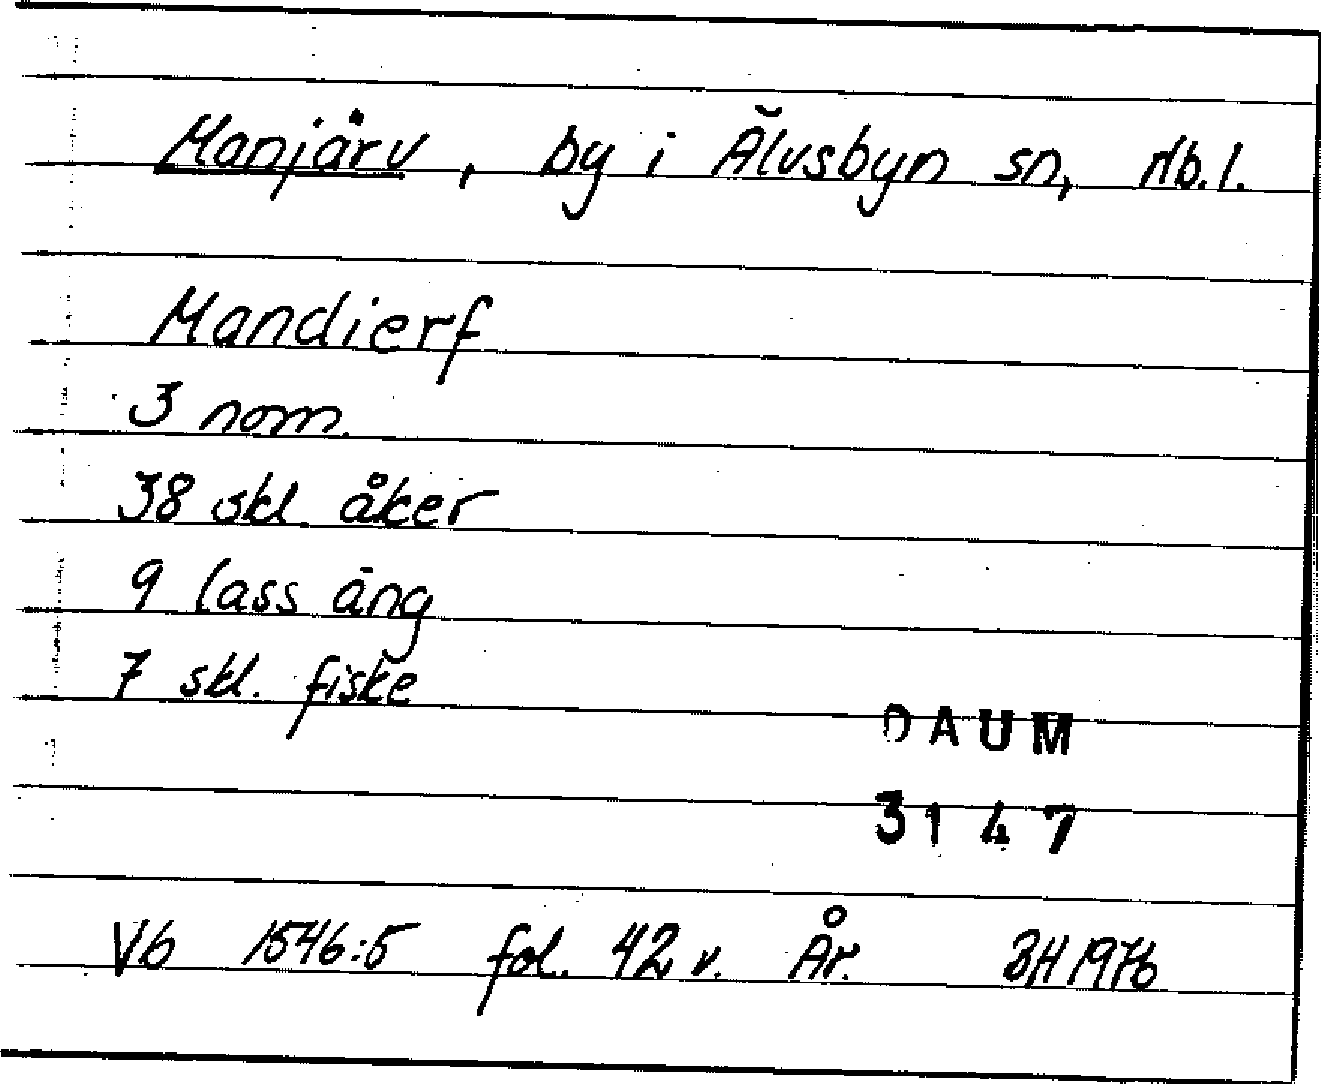 Manjärv, by i Älvsbyn sn, Nb.l.
Mandierf
3 nom.
38 skl. åker
9 lass äng
7 skl. fiske
DAUM
3147
Vb 1546:5 fol. 42 v. År. BH 1976